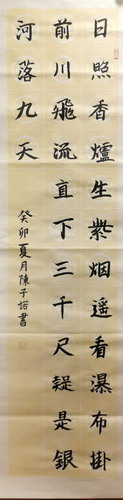 日照香爐生紫烟遥看瀑布掛
前川飛流直下三千尺疑是銀
河落九天
癸卯夏月陳子諾書